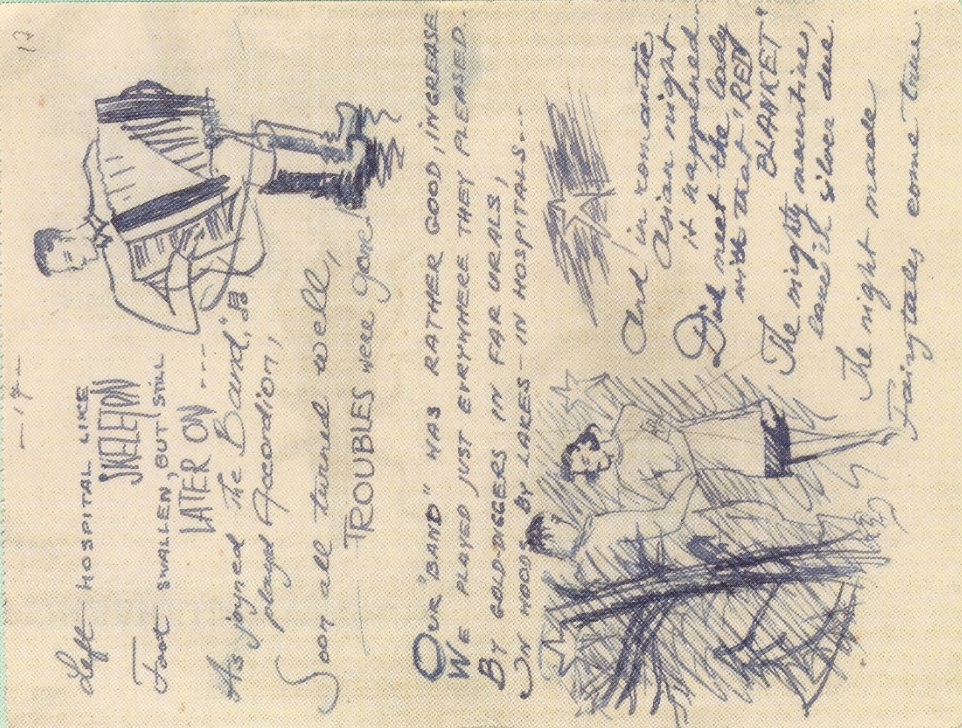 17
- 17 -
Left HOSPITAL LIKE
SKELETON
Foot SWALLEN, BUT STILL
LATER ON ---
As joyned "The Band",
played Accordion,
Soon all turned well,
TROUBLES were gone
OUR "BAND" WAS RATHER GOOD, INGREASE
WE PLAYED JUST EVRYWHERE THEY PLEASED..
BY GOLD-DIGGERS IN FAR URALS,
IN WOODS, BY LAKES - IN HOSPITALS...
And in romantic
asian night
it happened
Did meet the lady
with that "RED
BLANKET"
The mighty mountines,
silver due.
The night made
fairytales come true.